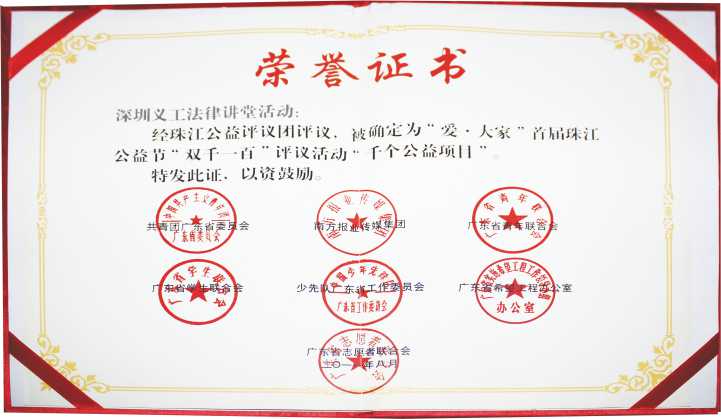 荣誉证书
深圳义工法律讲堂活动：
经珠江公益评议团评议，被确定为“爱·大家”首届珠江
公益节“双千一百”评议活动“千个公益项目”。
特发此证，以资鼓励。
共青团广东省委员会
南方报业传媒集团
广东省青年联合会
广东省学生联合会
少先队广东省工作委员会
广东省希望工程办公室
广东省志愿者联合会
年八月